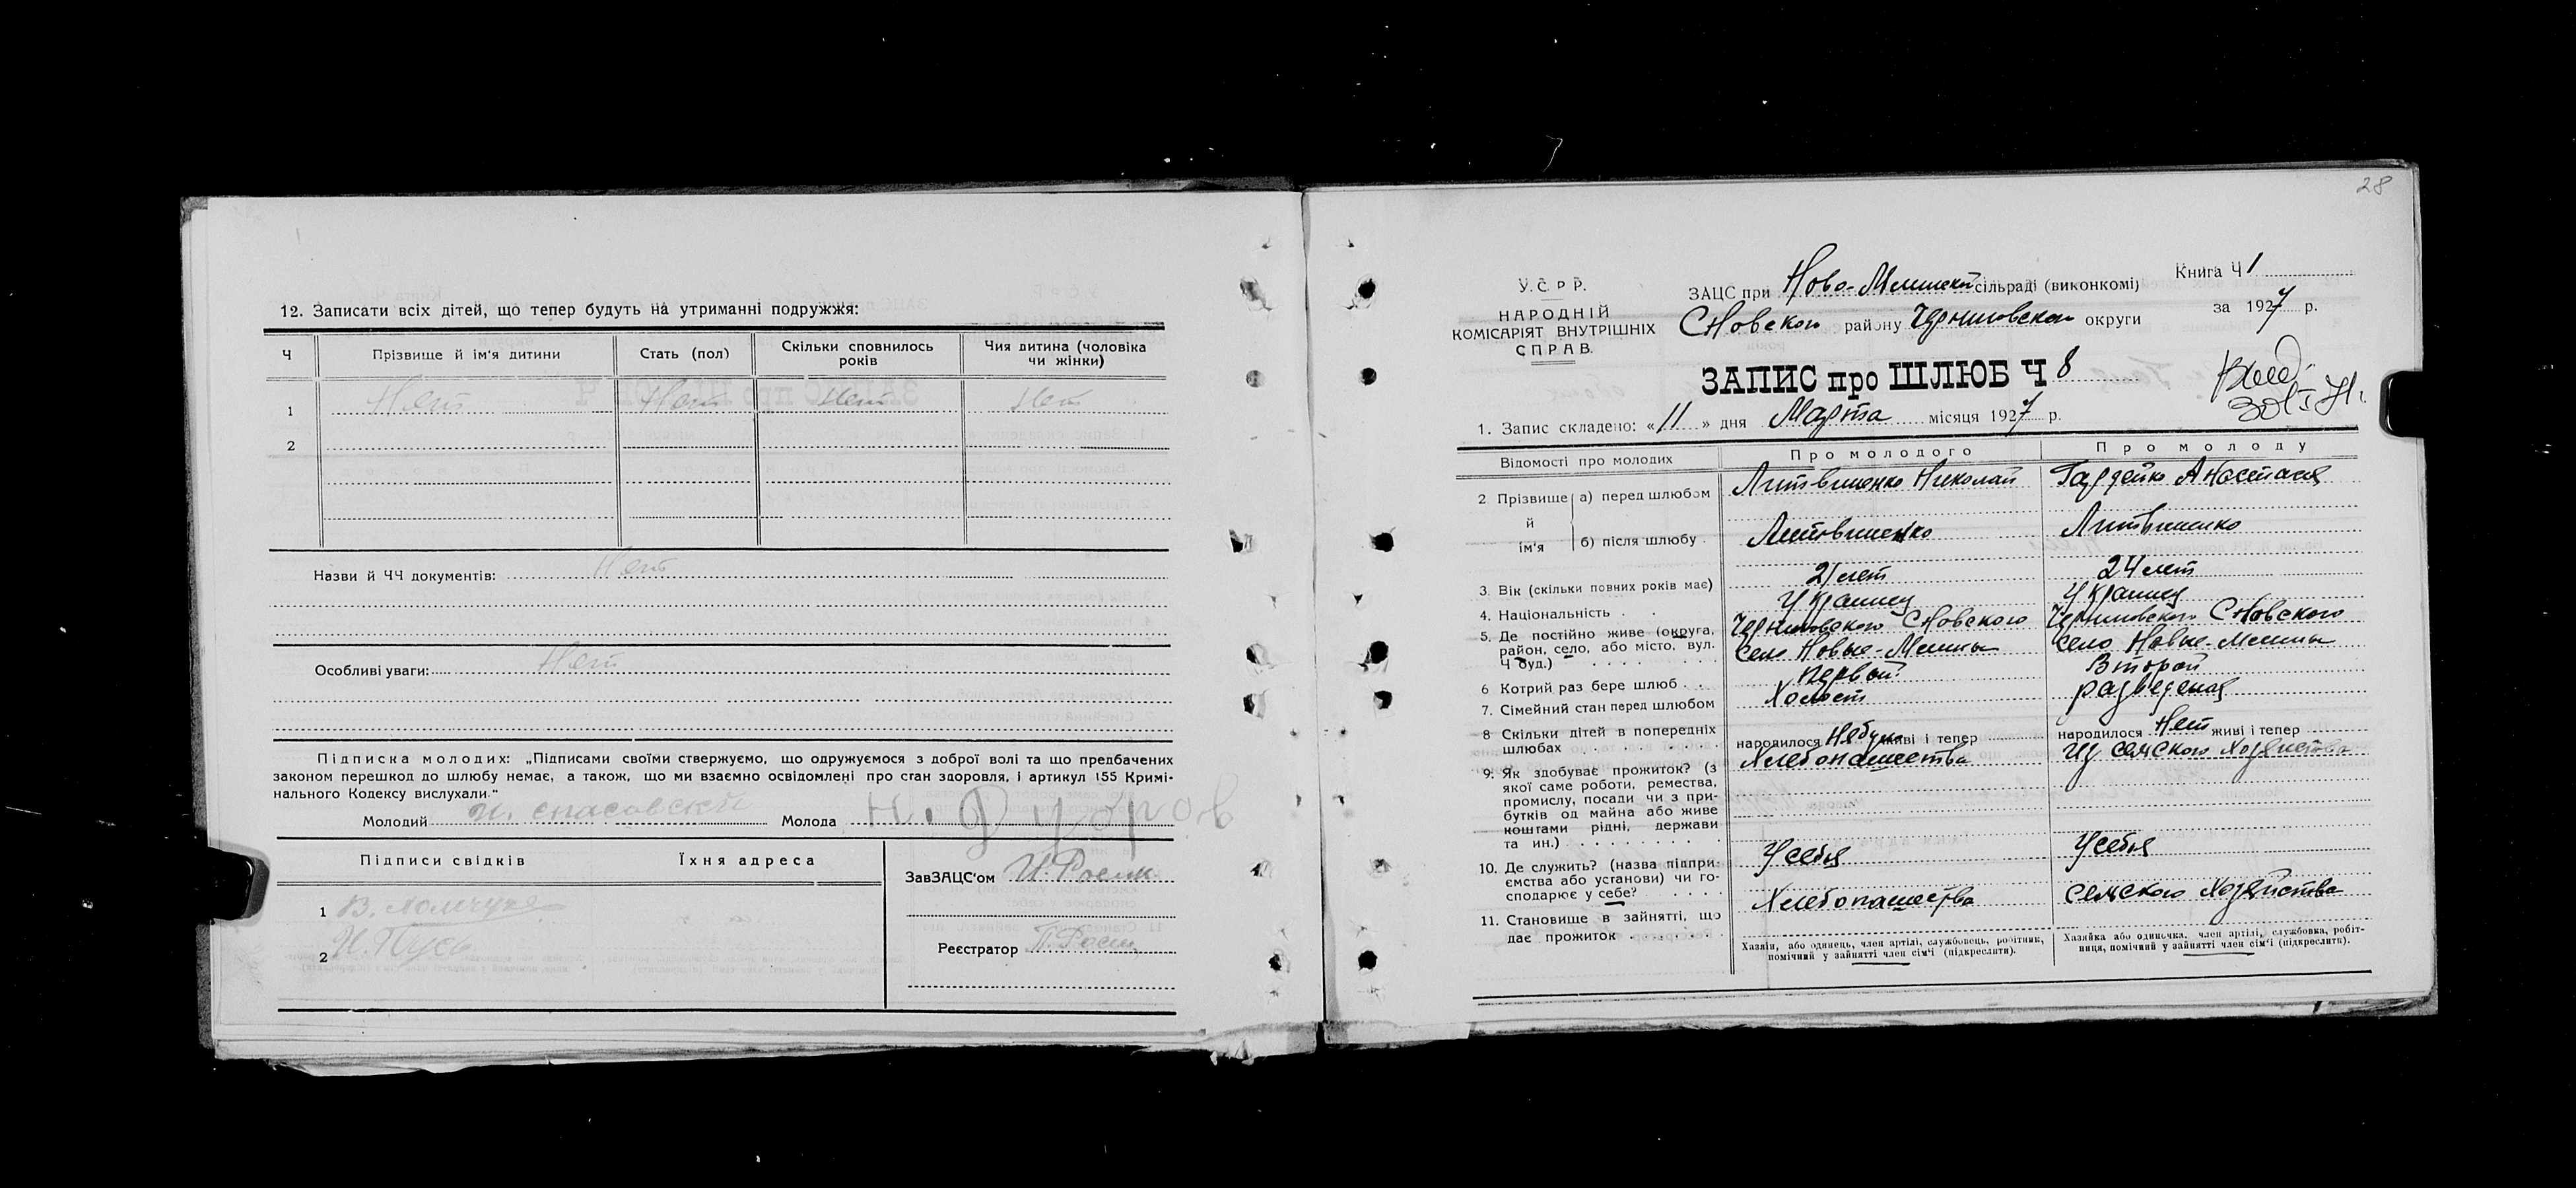 12. Записати всіх дітей, що тепер будуть на утриманні подружжя:
Ч
Прізвище й ім'я дитини
Стать (пол)
Скільки сповнилось років
Чия дитина (чоловіка чи жінки)
1 Нет Нет Нет Нет
2
Назви й ЧЧ документів: Нет
Особливі уваги: Нет
Підписка молодих: „Підписами своїми стверджуємо, що одружуємося з доброї волі та що предбачених
законом перешкод до шлюбу немає, а також, що ми взаємно освідомлені про стан здоровля, і артикул 155 Кримі-
нального Кодексу вислухали."
Молодий Н. спасовский Молода
Підписи свідків
Їхня адреса
ЗавЗАЦС'ом
1 В.
2
Реєстратор
28
У.С.Р.Р.
НАРОДНІЙ
КОМІСАРІЯТ ВНУТРІШНІХ
СПРАВ.
ЗАЦС при Ново-Мишски сільраді (виконкомі)
Сновского району Черниговском округи
Книга Ч 1
за 1927 р.
ЗАПИС про ШЛЮБ Ч 8
1. Запис складено: «11» дня Марта місяця 1927 р.
Відомості про молодих
Про молодого
Про молоду
2 Прізвище й ім'я
а) перед шлюбом
Литвиненко Николай
Анастасия
б) після шлюбу
Литвиненко
Литвиненко
3. Вік (скільки повних років має)
21 лет
24 лет
4. Національність
Украинец
Украинец
5. Де постійно живе (округа,
район, село, або місто, вул.
Ч буд.)
Черниговского Сновского
село Новые-Млины
Черниговского Сновского
село Новые-Млины
6 Котрий раз бере шлюб
первой
Второй
7. Сімейний стан перед шлюбом
Холост
разведеная
8 Скільки дітей в попередніх
шлюбах
народилося Небуло живі і тепер
народилося Нет живі і тепер
9. Як здобуває прожиток? (з
якої саме роботи, ремества,
промислу, посади чи з при-
бутків од майна або живе
коштами рідні, держави
та ин.)
Хлебопашества
Из семского Хозяйства
10. Де служить? (назва підпри-
ємства або установи) чи го-
сподарює у себе?
У себя
У себя
11. Становище в зайнятті, що
дає прожиток
Хлебопашества
семского Хозяйства
Хазяїн, або одинець, член артілі, службовець, робітник,
помічний у зайнятті член сім'ї (підкреслити).
Хазяйка або одиначка, член артілі, службовка, робіт-
ниця, помічний у зайнятті член сім'ї (підкреслити).